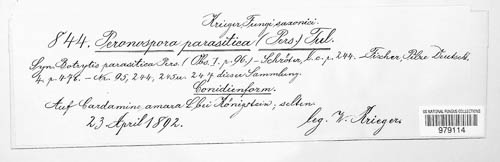 Krieger, Fungi saxonici.
844. Peronospora parasitica (Pers.) Tul.
Syn. Botrytis parasitica Pers. (Obs. I. p. 96.) – Schröter, l. c. p. 244. – Fischer, Pilze Deutsch.
4. p. 478. – No. 95, 244, 245 u. 247 dieser Sammlung.
Conidienform.
Auf Cardamine amara L. bei Königstein; selten.
23. April 1892. leg. W. Krieger.
US NATIONAL FUNGUS COLLECTIONS
979114